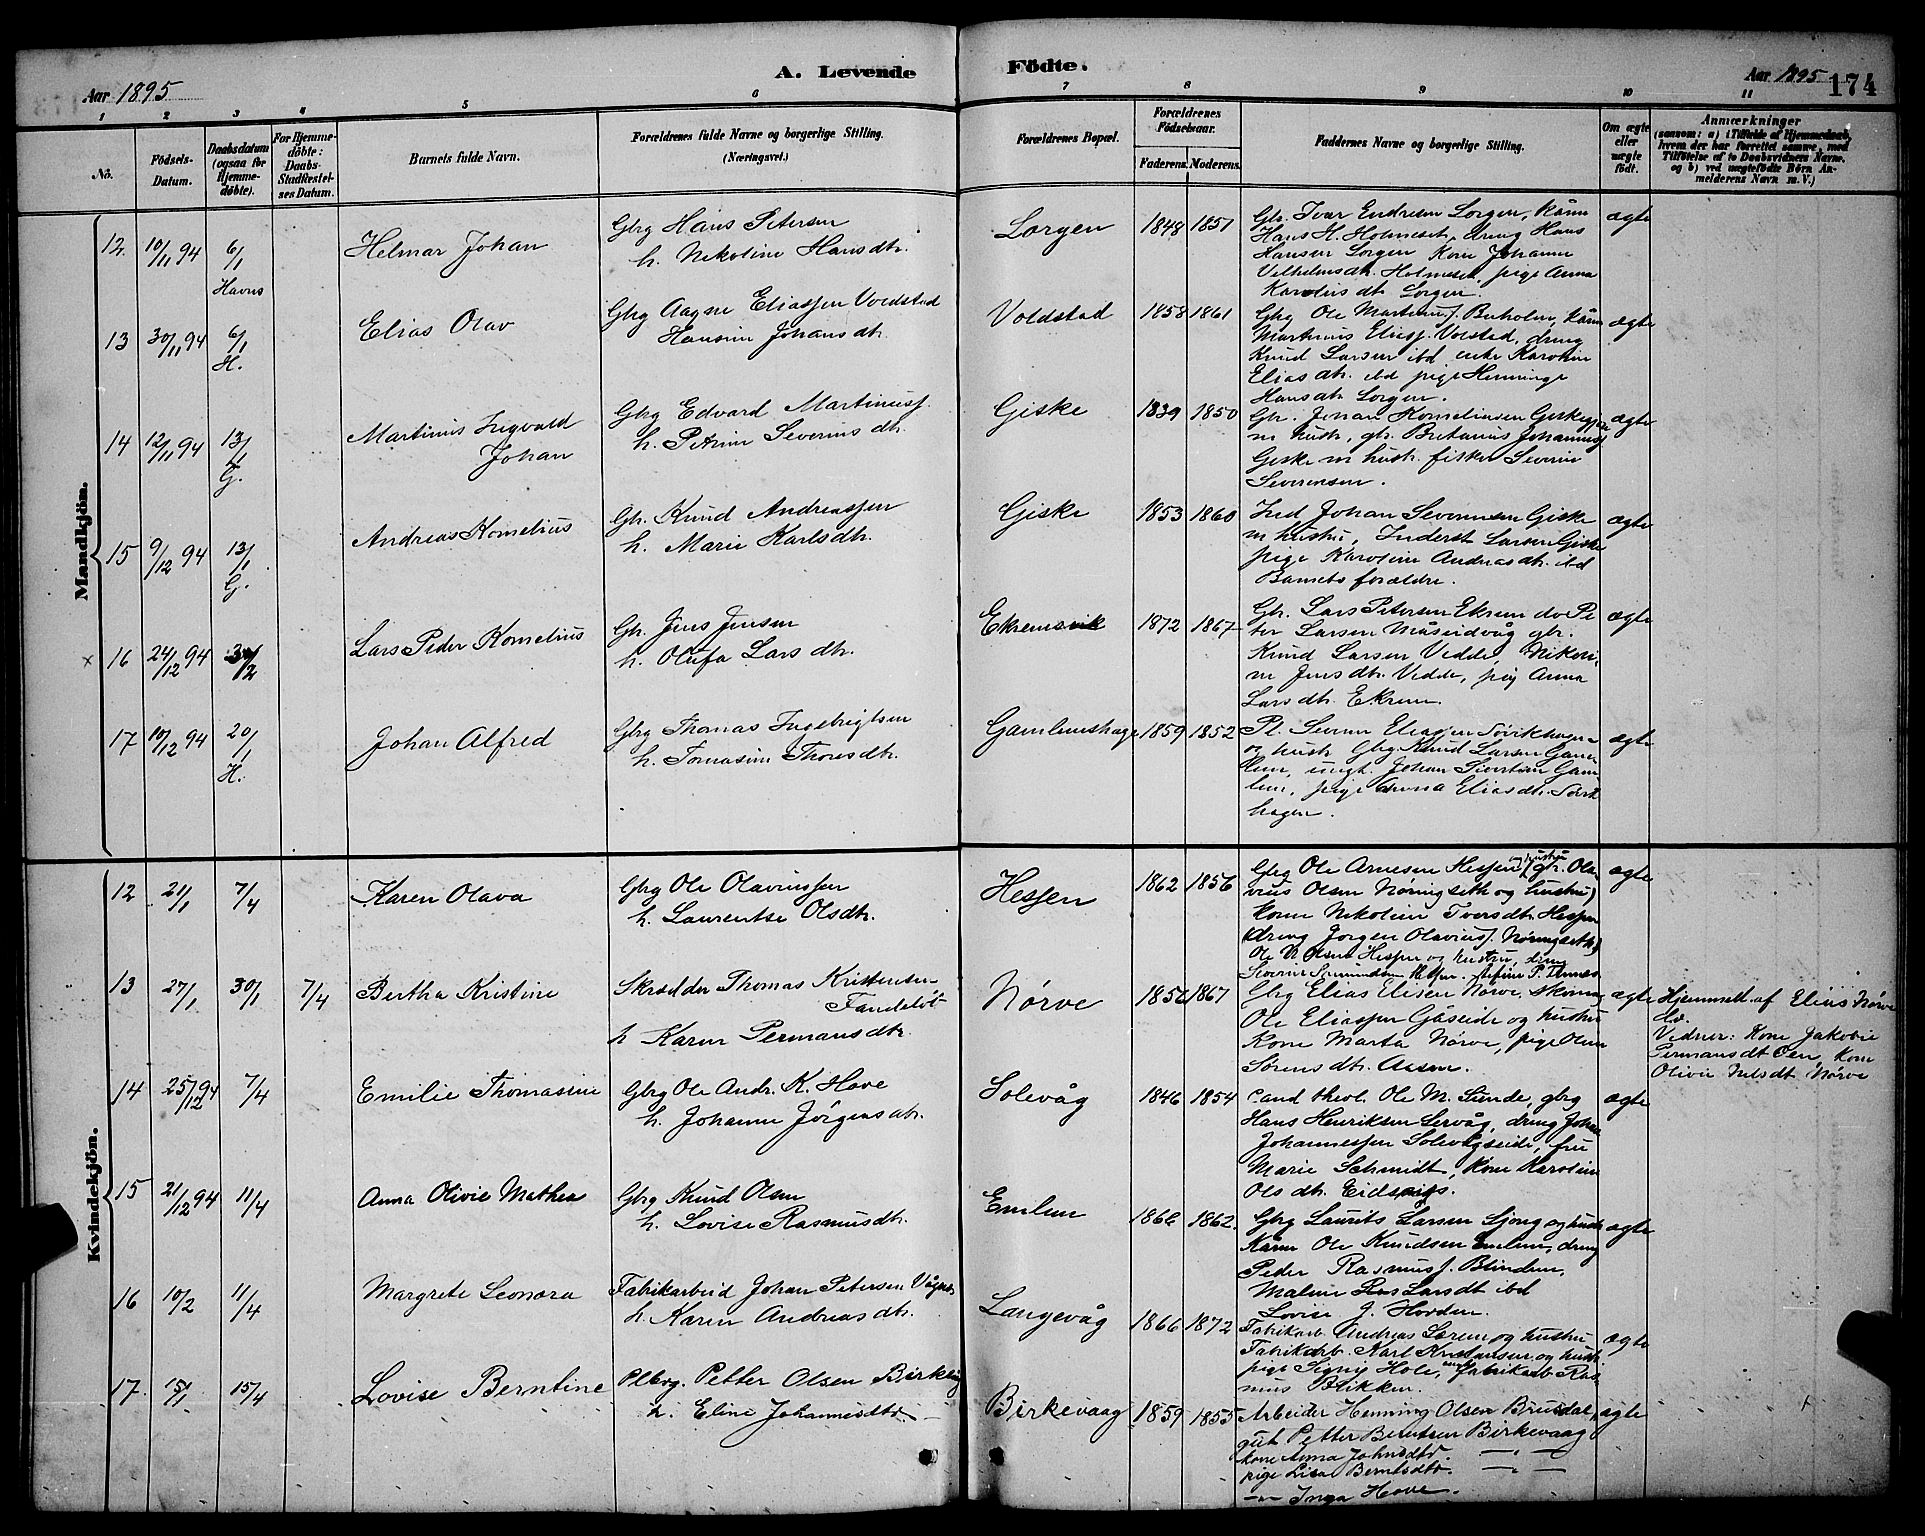 A. Levende Födte.
Aar 1895
Aar 1895
174
1 2 3 4 5 6 7 8 9 10 11
No.
Födsels-Datum.
Daabsdatum (ogsaa for Hjemmedöbte).
For Hjemmedöbte: Daabs-Stadfæstelses Datum.
Barnets fulde Navn.
Forældrenes fulde Navne og borgerlige Stilling. (Næringsvei.)
Forældrenes Bopæl.
Forældrenes Födselsaar.
Faderens. Moderens.
Faddernes Navne og borgerlige Stilling.
Om ægte eller uægte födt.
Anmærkninger
(saasom: a) i Tilfælde af Hjemmedaab, hvem der har forrettet samme, med Tilföielse af to Daabsvidners Navne, og b) ved uægtefödte Børn Anmelderens Navn m. V.)
Mandkjön.
12 10/11 94 6/1 Havns
Helmar Johan
Gbrg Hans Petersen
h. Nikoline Hansdtr.
Sorgen 1848 1851
Gbr. Ivar Endresen Sorgen, kårm
Hans H. Holmeset, dreng Hans
Hansen Sorgen Kone Johanne
Vilhelmsdtr. Holmeset, pige Anna
Karolusdt Sorgen.
ægte
13 30/11 94 6/1 H.
Elias Olav
Gbrg Aagne Eliassen Voldstad
Hansine Johansdtr.
Voldstad 1858 1861
Gbrg Ole Martinus J. Buholm, kårm
Martinus Eliasj. Volstad, dreng
Knud Larsen ibd enke Karoline
Eliasdtr. ibd pige Henninge
Hansdtr Sorgen.
ægte
14 12/11 94 13/1 G.
Martinus Ingvald
Johan
Gbrg Edvard Martinusj.
h. Petrine Severinsdtr.
Giske 1839 1850
Gbr. Johan Kornelinsen Giskegjær
m hustr, gbr. Britanius Johannesj
Giske m hustr. fisker Severin
Severensen.
ægte
15 9/12 94 13/1 G.
Andreas Kornelius
Gbr. Knud Andreassen
h. Marie Karlsdtr.
Giske 1853 1860
Ind Johan Severinsen Giske
m hustru, Inderst Larsen Giske
pige Karoline Andreasdtr. ibd
Barnets forældre.
ægte
x 16 24/12 94
Lars Peder Kornelius
Gbr. Jens Jensen
h. Olufa Larsdtr.
Ekremsvik 1872 1867
Gbr. Lars Petersen Ekrem do Pe
ter Larsen Måseidvåg gbr.
Knud Larsen Vedde, Nikoli
ne Jensdtr. Vedde, pig Anna
Larsdtr. Ekrem.
ægte
17 10/12 94 20/1 H.
Johan Alfred
Gbrg Thomas Ingebrigtsen
h. Tomasine Thoresdtr.
Gamlemshage 1859 1852
Pl. Severin Eliasjen Søvikhagen
og hustr Gbrg. Knud Larsen Gam
lem, ungk. Johan Sivertsen Gam
lem, pige Anna Eliasdtr. Søvik
hagen.
ægte
Kvindekjön.
12 21/1 7/4
Karen Olava
Gbrg Ole Olavinssen
h. Laurentse Olsdtr.
Hessen 1862 1856
Gbrg Ole Arnesen Hessen og hustru (gbr. Ola
vius Olsen Nøringseth og hustru)
kone Nikoline Iversdtr. Hessen
(dreng Jørgen Olaviusj. Nøringseth)
Ole N Olsen Hessen og hustru, dreng
ægte
13 27/1 30/1 7/4
Bertha Kristine
Skrædder Thomas Kristensen
h Karen Permansdtr
Nørve 1867
Gbrg Elias Elisen Nørve, skom
Ole Eliassen Gåseide og hustru
Kone Marta Nørve, pige Oline
Sørensdtr. Aasen.
ægte
Hjemmedt. af Elias Nørve
Vidner: Kone Jakobine
Permansdt Oen, kone
Olivie Nilsdt Nørve
14 25/12 94 7/4
Emilie Thomasine
Gbrg Ole Andr. K. Hove
h. Johanne Jörgensdtr.
Solevåg 1846 1854
Cand theol. Ole M. Sunde, gbrg
Hans Henriksen Servåg, dreng Johan
Johannessen Solevågseide, fru
Marie Schmidt, Kone Karoline
Olsdtr. Eidsvigs.
ægte
15 21/12 94 11/4
Anna Olivie Mathea
Gbrg Knud Olsen
h. Lovise Rasmusdtr.
Emlem 1866 1862.
Gbrg Laurits Larsen Ljong og hustr
Kårm Ole Knudsen Emlem, dreng
Peder Rasmusj. Blindem,
Maline Larsdt ibd
Lovise J. Hovden.
ægte
16 10/2 11/4
Margrete Leonora
Fabrikarbeid Johan Petersen Vågnes
h. Karen Andreasdtr.
Langevåg 1866 1872
Fabrikarb. Andreas Sørem og hustru
Fabrikarb Karl Kristiansen og hustr
pige Signy Hole, ungk fabrikarb Ras
mus Blikken.
ægte
17. 15/1 15/4
Lovise Berntine
Plbrg. Petter Olsen Birkevåg
h. Eline Johannesdtr
Birkevaag 1859 1855
Arbeider Henning Olsen Brusdal,
gut Petter Berntsen Birkevaag
kone Anna Johnsdtr — " —
pige Lisa Berntsdtr. — " —
— " — Inga Hove.
ægte